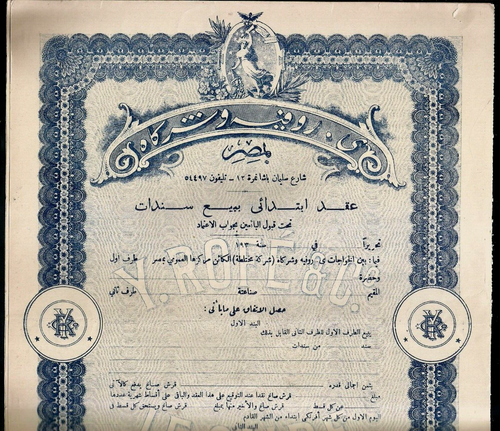 ى. روفيه وشركاه
بمصر
شارع سليمان باشا نمرة ١٣ - تليفون ٥٤٤٩٧
عقد ابتدائى ببيع سندات
تحت قبول البائعين بجواب الاعتماد
تحريراً فى سنة ١٩٣
فيما بين الخواجات ى. روفيه وشركاه (شركة مختلطة) الكائن مركزها العمومى بمصر طرف اول
وحضرة
المقيم صناعته طرف ثانى
Y. ROFÉ & Co.
حصل الاتفاق على ما يأتى :
البند الاول
يبيع الطرف الاول للطرف الثانى القابل بذلك
عدد من سندات
بثمن اجمالى قدره قرش صاغ يدفع كالآتى
مبلغ قرش صاغ نقدا عند التوقيع على هذا العقد والباقى على أقساط شهرية عددها
من كل قسط قرش صاغ والاخير منها بمبلغ قرش صاغ ويستحق كل قسط فى
اليوم الاول من كل شهر أفرنكى ابتداء من الشهر القادم
البند الثانى